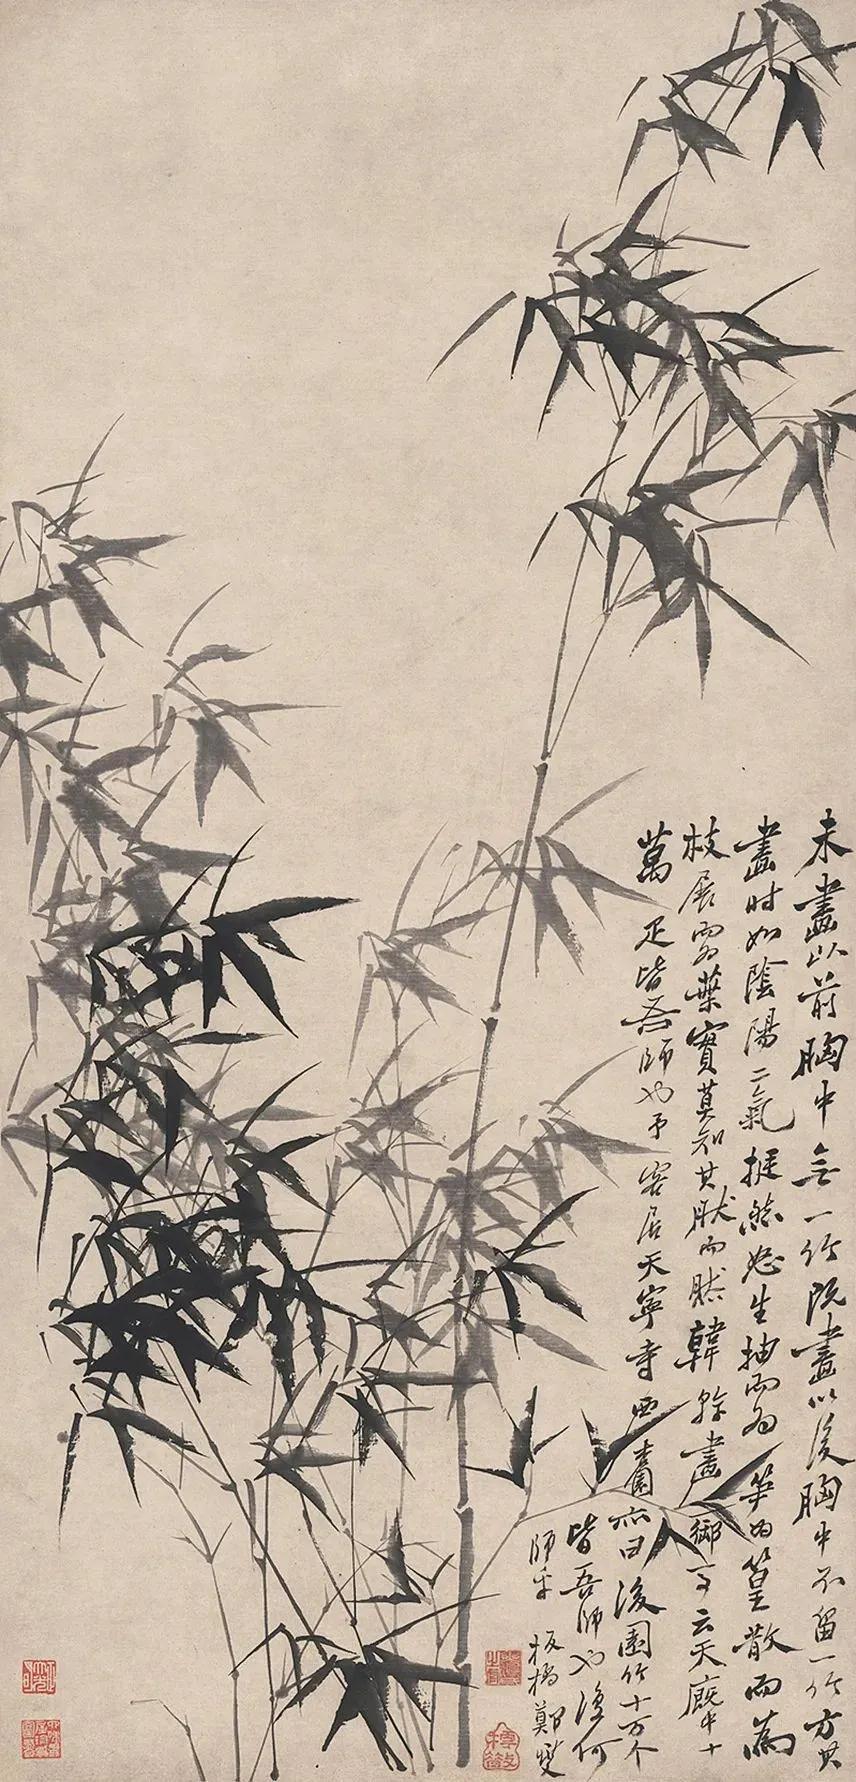 未畫以前胸中無一竹既畫以後胸中不留一竹方其
畫時如陰陽二氣挺然怒生抽而為笋為篁散而為
枝展而為葉實莫知其肰而肰韓幹畫御馬云天廄中十
萬疋皆吾師也予客居天寧寺西杏園亦曰後園竹十万个
皆吾師也復何
師乎 板橋鄭燮
樗散